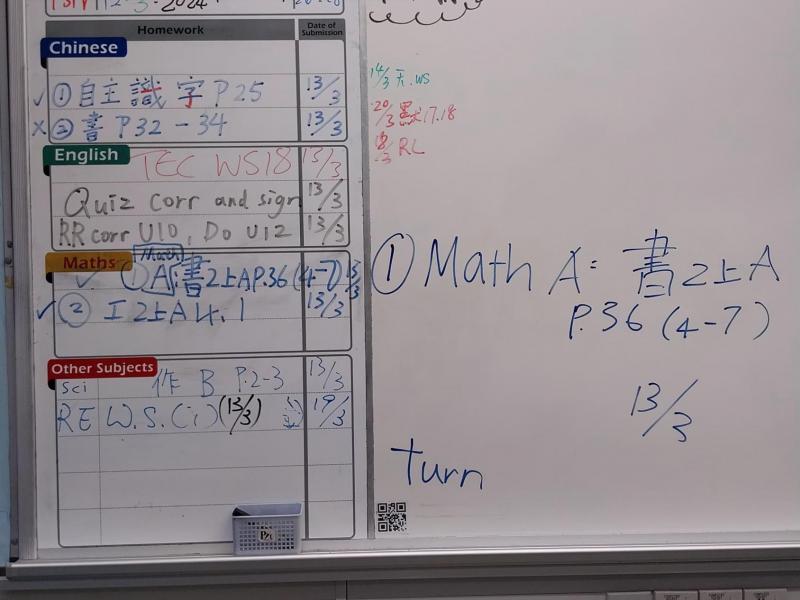 2024
Homework
Date of Submission
Chinese
✓ ① 自主識字 P25 13/3
x ② 書 P32-34 13/3
English
TEC WS18 13/3
Quiz corr and sign 13/3
RR corr U10, Do U12 13/3
Maths
Math
✓ ① A:書2上A P.36 (4-7) 13/3
✓ ② 工2上A 4.1 13/3
Other Subjects
Sci 作 B P.2-3 13/3
RE W.S.(i)(13/3) 19/3
14/3 天.WS
20/3 17.18
18/3 RL
① Math A: 書2上A
P.36 (4-7)
13/3
Turn